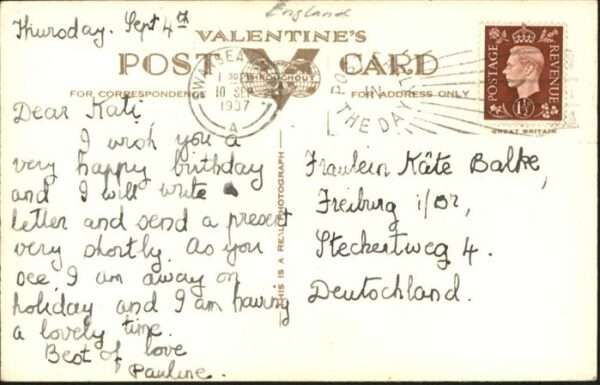 England
Thursday. Sept 4th
VALENTINE'S
POST CARD
FOR CORRESPONDENCE
FOR ADDRESS ONLY
SWANSEA
10 SEP
1937
A
POST EARLY
IN
THE DAY
POSTAGE
REVENUE
1½
GREAT BRITAIN
THIS IS A REAL PHOTOGRAPH
Dear Kati,
I wish you a
very happy birthday
and I will write
letter and send a present
very shortly. As you
see, I am away on
holiday and I am having
a lovely time.
Best of love
Pauline.
Fraulein Käte Balke,
Freiburg i/Br,
Steckertweg 4.
Deutschland.